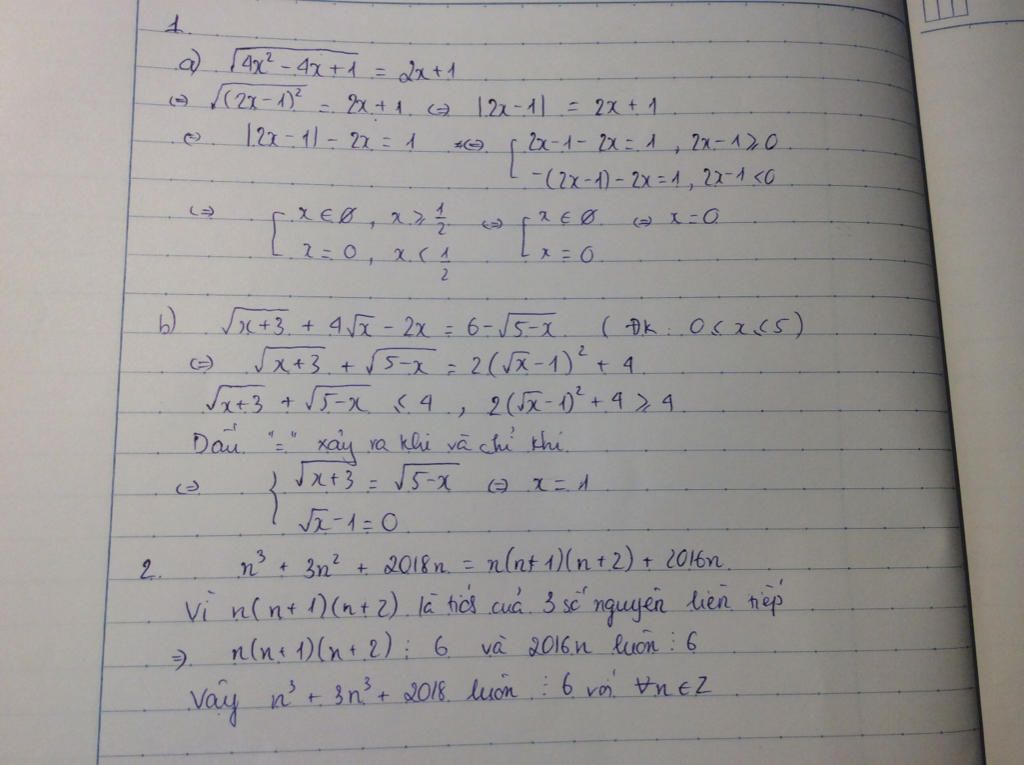 1.
a) √(4x² - 4x + 1) = 2x + 1
⇔ √((2x - 1)²) = 2x + 1 ⇔ |2x - 1| = 2x + 1
⇔ |2x - 1| - 2x = 1 ⇔ [ 2x - 1 - 2x = 1 , 2x - 1 ⩾ 0
-(2x - 1) - 2x = 1 , 2x - 1 < 0
⇔ [ x ∈ ∅ , x ⩾ 1/2 ⇔ [ x ∈ ∅ ⇔ x = 0
x = 0 , x < 1/2 x = 0
b) √(x+3) + 4√x - 2x = 6 - √(5-x) ( ĐK : 0 ⩽ x ⩽ 5 )
⇔ √(x+3) + √(5-x) = 2(√x - 1)² + 4
√(x+3) + √(5-x) ⩽ 4 , 2(√x - 1)² + 4 ⩾ 4
Dấu "=" xảy ra khi và chỉ khi
⇔ { √(x+3) = √(5-x) ⇔ x = 1
√x - 1 = 0
2. n³ + 3n² + 2018n = n(n+1)(n+2) + 2016n
Vì n(n+1)(n+2) là tích của 3 số nguyên liên tiếp
⇒ n(n+1)(n+2) ⋮ 6 và 2016n luôn ⋮ 6
Vậy n³ + 3n³ + 2018 luôn ⋮ 6 với ∀n ∈ Z